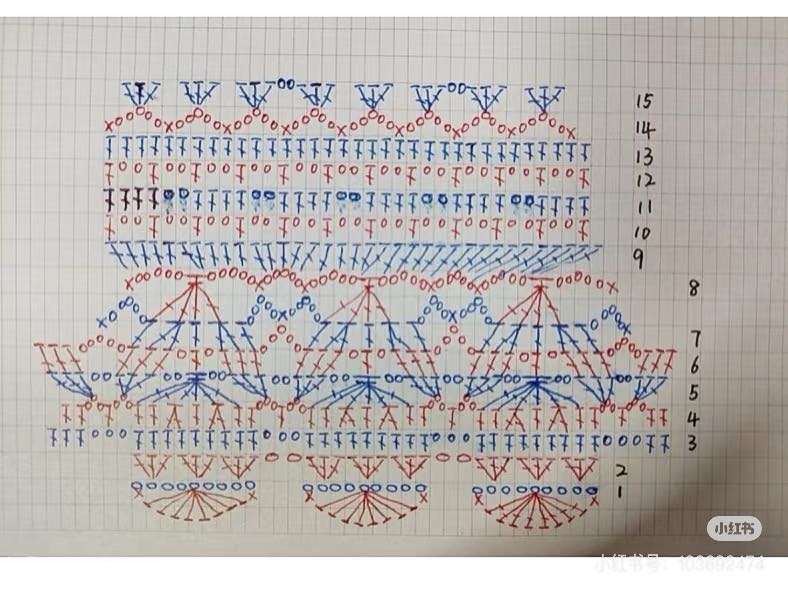 15
14
13
12
11
10
9
8
7
6
5
4
3
2
1
小红书
小红书号：103692474